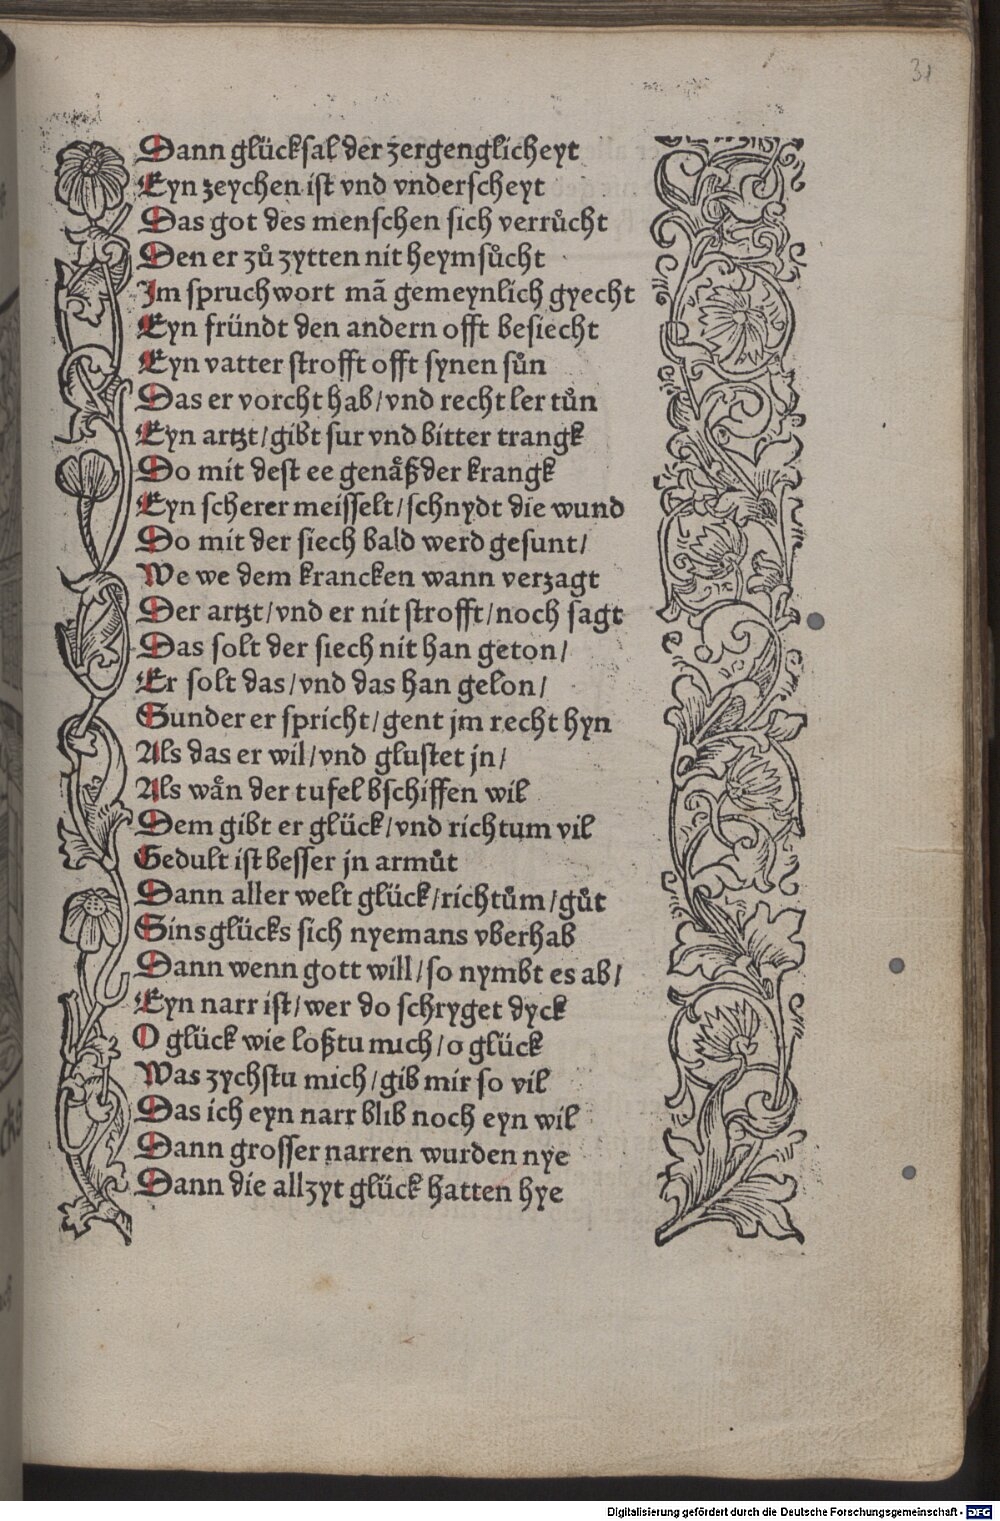 31
Dann glücksal der zergenglicheyt
Eyn zeychen ist vnd vnderscheyt
Das got des menschen sich verrůcht
Den er zů zytten nit heymsůcht
Im spruchwort mã gemeynlich gyecht
Eyn fründt den andern offt besiecht
Eyn vatter strofft offt synen sůn
Das er vorcht hab/vnd recht ler tůn
Eyn artzt/gibt sur vnd bitter trangk
Do mit dest ee genåß der krangk
Eyn scherer meisselt/schnydt die wund
Do mit der siech bald werd gesunt/
We we dem krancken wann verzagt
Der artzt/vnd er nit strofft/noch sagt
Das solt der siech nit han geton/
Er solt das/vnd das han gelon/
Sunder er spricht/gent jm recht hyn
Als das er wil/vnd glustet jn/
Als wån der tufel bschissen wil
Dem gibt er glück/vnd richtum vil
Gedult ist besser jn armůt
Dann aller welt glück/richtům/gůt
Sins glücks sich nyemans vberhab
Dann wenn gott will/so nymbt es ab/
Eyn narr ist/wer do schryget dyck
O glück wie loßtu mich/o glück
Was zychstu mich/gib mir so vil
Das ich eyn narr blib noch eyn wil
Dann grosser narren wurden nye
Dann die allzyt glück hatten hye
Digitalisierung gefördert durch die Deutsche Forschungsgemeinschaft - DFG